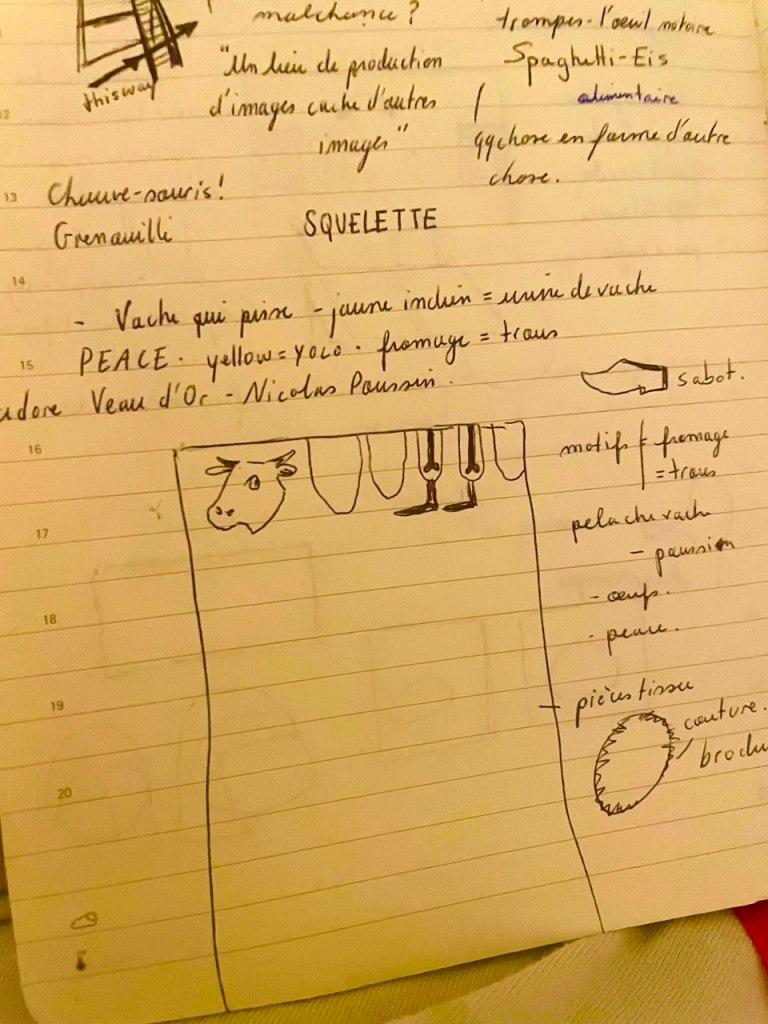 malchance ?
"Un lieu de production
d'images cache d'autres
images"
this way
trompes-l'oeuil notoire
Spaghetti-Eis
alimentaire
qqchose en forme d'autre
chose.
12
13
Chauve-souris!
Grenouille
SQUELETTE
14
- Vache qui pisse - jaune indien = urine de vache
15
PEACE. yellow = YOLO. fromage = trous
adore Veau d'Or - Nicolas Poussin.
sabot.
16
17
18
19
20
motifs fromage
= trous
vache
- poussin
- oeufs.
- peace.
pièces tissu
couture.